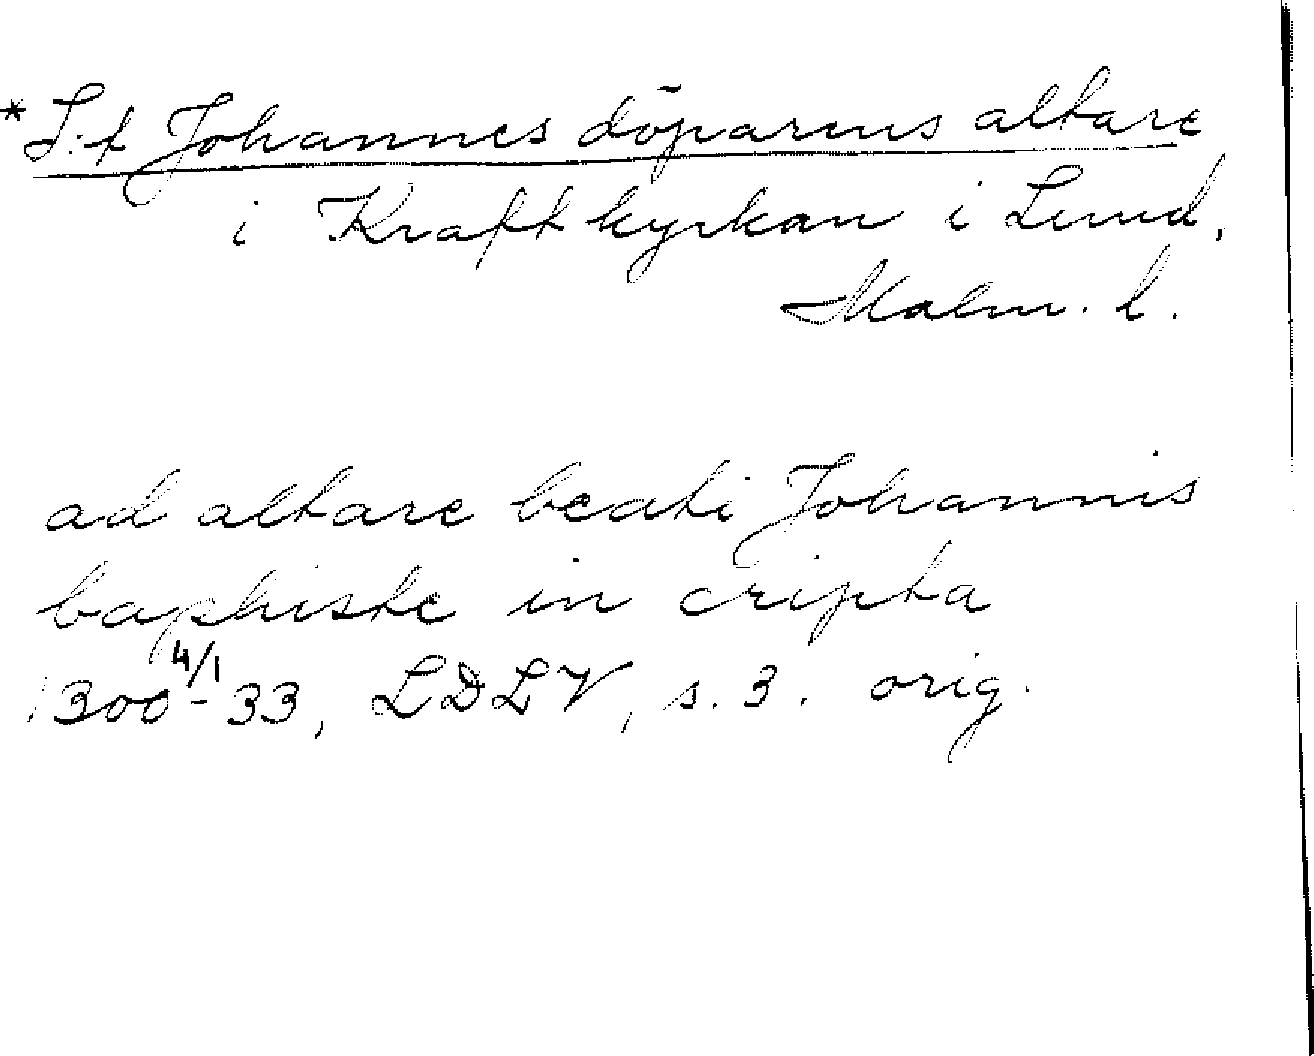 * S:t Johannes döparens altare
i Kraftkyrkan i Lund,
Malm. l.
ad altare beati Johannis
baptiste in cripta
1300 4/1 - 33, LDLV, s. 3. orig.